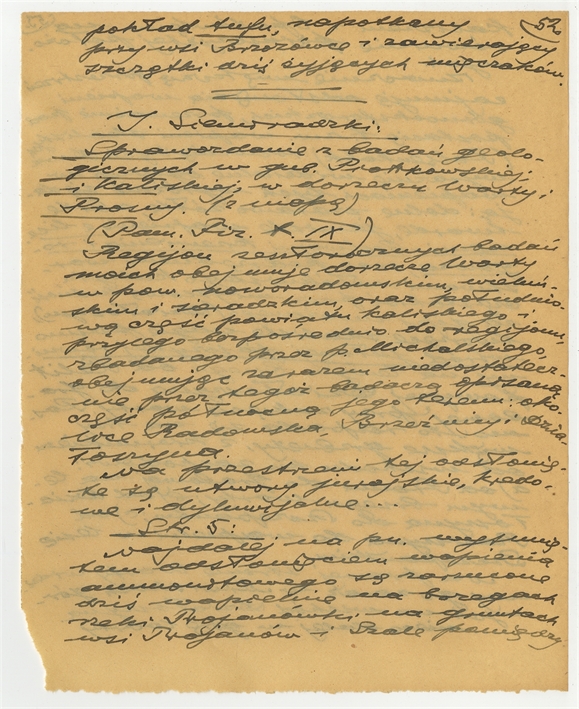 52.
pokład tufu, napotkany
przy wsi Brzozówce i zawierający
szczątki dziś żyjących mięczaków.
J. Siemiradzki:
Sprawozdanie z badań geolo-
gicznych w gub. Piotrkowskiej
i Kaliskiej, w dorzeczu Warty i
Prosny. (z mapą)
(Pam. Fiz. t. IX)
Regijon zeszłorocznych badań
moich obejmuje dorzecze Warty
w pow. noworadomskim, wieluń-
skim i sieradzkim, oraz południo-
wą część powiatu kaliskiego i
przylega bezpośrednio do regijonu,
zbadanego przez p. Michalskiego,
obejmując zarazem niedostatecz-
nie przez tegoż badacza opisaną
część północną jego terenu: oko-
lice Radomska, Brzeźnicy i Dzia-
łoszyna.
Na przestrzeni tej odsłonię-
te są utwory jurajskie, kredo-
we i dyluwijalne...
Str. 5:
Najdalej na pn. wysunię-
tem odsłonięciem wapienia
ammonitowego są zarzucone
dziś wapielnie na brzegach
rzeki Trojanówki na gruntach
wsi Trojanów i Szale pomiędzy